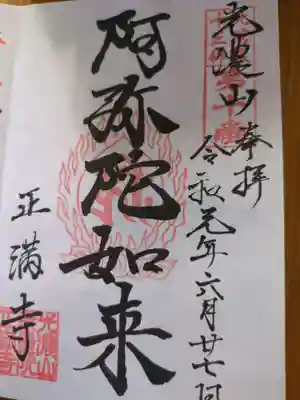 奉拝
令和元年六月廿七日
阿弥陀如来
正満寺